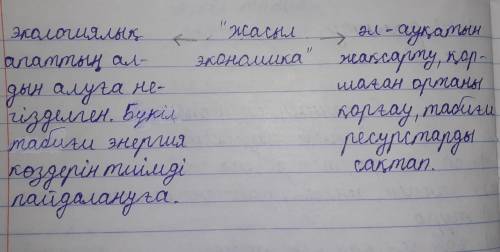 экологиялық
апаттың ал-
дын алуға не-
гізделген. Бүкіл
табиғи энергия
көздерін тиімді
пайдалануға.
"жасыл
экономика"
әл-ауқатын
жақсарту, қор-
шаған ортаны
қорғау, табиғи
ресурстарды
сақтап.